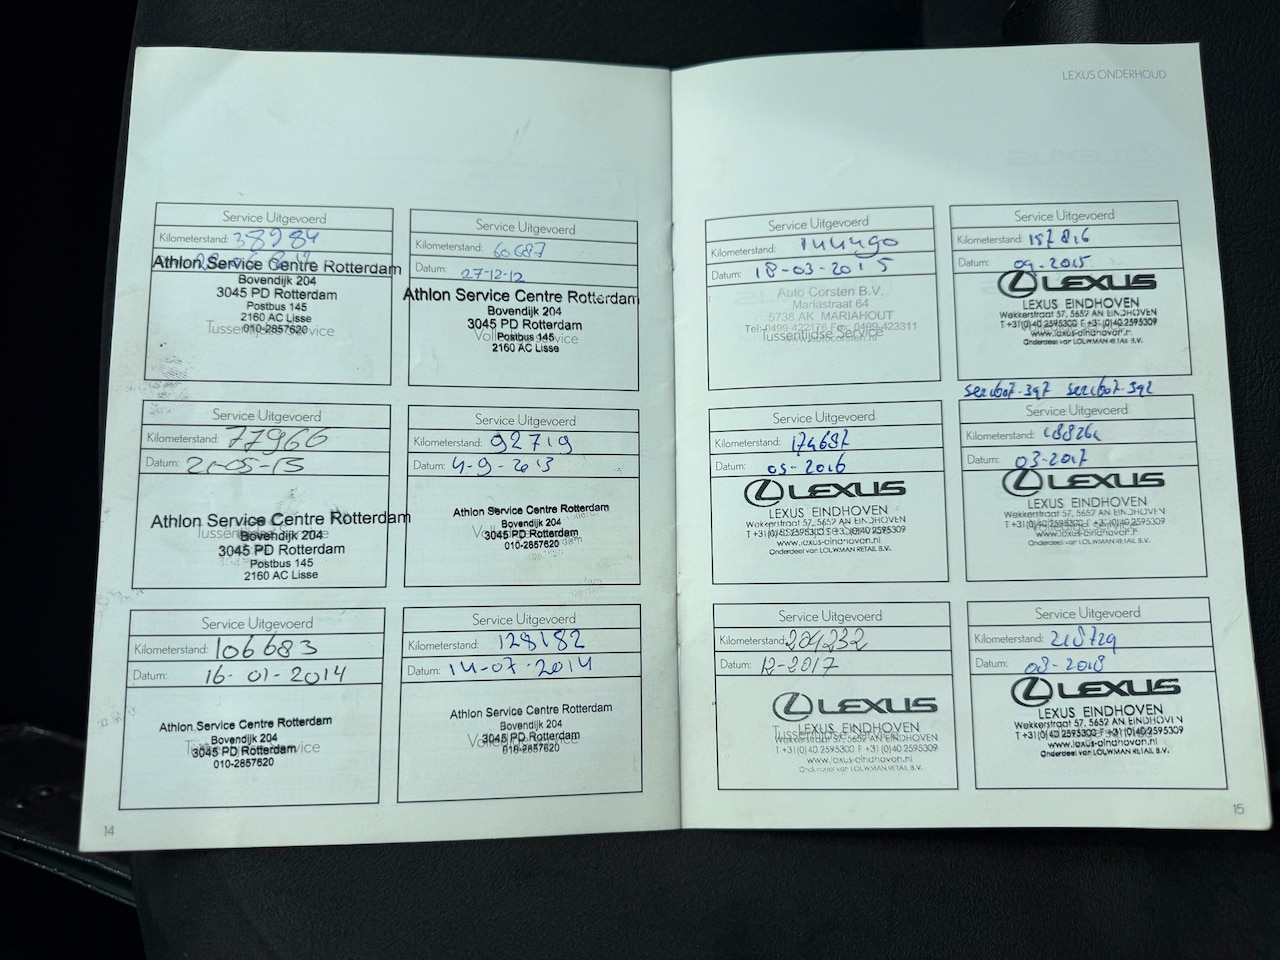 LEXUS ONDERHOUD
Service Uitgevoerd
Kilometerstand: 38984
Athlon Service Centre Rotterdam
Bovendijk 204
3045 PD Rotterdam
Postbus 145
2160 AC Lisse
010-2857620
Tussentijdse Service
Service Uitgevoerd
Kilometerstand: 60687
Datum: 27-12-12
Athlon Service Centre Rotterdam
Bovendijk 204
3045 PD Rotterdam
Postbus 145
2160 AC Lisse
Service Uitgevoerd
Kilometerstand: 77966
Datum: 21-05-13
Athlon Service Centre Rotterdam
Tussentijdse Service
Bovendijk 204
3045 PD Rotterdam
Postbus 145
2160 AC Lisse
Service Uitgevoerd
Kilometerstand: 92719
Datum: 4-9-2013
Athlon Service Centre Rotterdam
Bovendijk 204
3045 PD Rotterdam
010-2857620
Service Uitgevoerd
Kilometerstand: 106683
Datum: 16-01-2014
Athlon Service Centre Rotterdam
Bovendijk 204
3045 PD Rotterdam
010-2857620
Service Uitgevoerd
Kilometerstand: 128182
Datum: 14-07-2014
Athlon Service Centre Rotterdam
Bovendijk 204
3045 PD Rotterdam
010-2857620
14
Service Uitgevoerd
Kilometerstand: 144490
Datum: 18-03-2015
Auto Corsten B.V.
Mariastraat 64
5738 AK MARIAHOUT
Tel: 0499-422176 Fax: 0499-423311
Tussentijdse Service
www.autocorsten.nl
Service Uitgevoerd
Kilometerstand: 157816
Datum: 09-2015
LEXUS
LEXUS EINDHOVEN
Wekkerstraat 57, 5652 AN EINDHOVEN
T +31(0)40 2595300 F +31(0)40 2595309
www.lexus-eindhoven.nl
Onderdeel van LOUWMAN RETAIL B.V.
Service Uitgevoerd
Kilometerstand: 174687
Datum: 05-2016
LEXUS
LEXUS EINDHOVEN
Wekkerstraat 57, 5652 AN EINDHOVEN
T +31(0)40 2595300 F +31(0)40 2595309
www.lexus-eindhoven.nl
Onderdeel van LOUWMAN RETAIL B.V.
Service Uitgevoerd
Kilometerstand:
Datum: 03-2017
LEXUS
LEXUS EINDHOVEN
Wekkerstraat 57, 5652 AN EINDHOVEN
T +31(0)40 2595300 F +31(0)40 2595309
www.lexus-eindhoven.nl
Onderdeel van LOUWMAN RETAIL B.V.
Service Uitgevoerd
Kilometerstand: 204232
Datum: 12-2017
LEXUS
LEXUS EINDHOVEN
Wekkerstraat 57, 5652 AN EINDHOVEN
T +31(0)40 2595300 F +31(0)40 2595309
www.lexus-eindhoven.nl
Onderdeel van LOUWMAN RETAIL B.V.
Service Uitgevoerd
Kilometerstand: 218729
Datum: 08-2018
LEXUS
LEXUS EINDHOVEN
Wekkerstraat 57, 5652 AN EINDHOVEN
T +31(0)40 2595300 F +31(0)40 2595309
www.lexus-eindhoven.nl
Onderdeel van LOUWMAN RETAIL B.V.
15